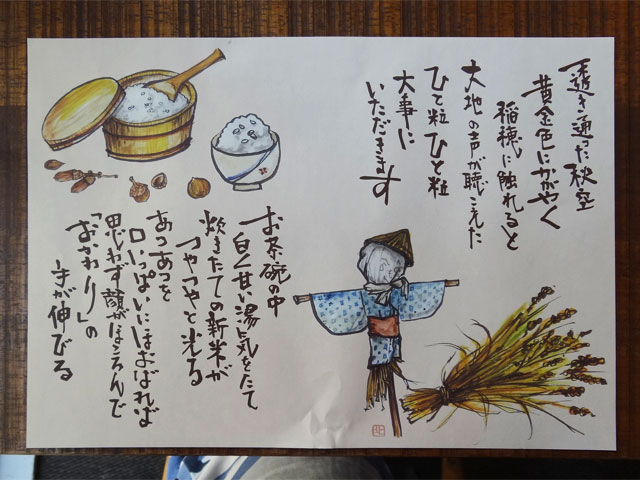 透き通った秋空
黄金色にかがやく
稲穂に触れると
大地の声が聴こえた
ひと粒ひと粒
大事に
いただきます
お茶碗の中
白く甘い湯気をたて
炊きたての新米が
つやつやと光る
あつあつを
口いっぱいにほおばれば
思わず顔がほころんで
「おかわり」の
手が伸びる